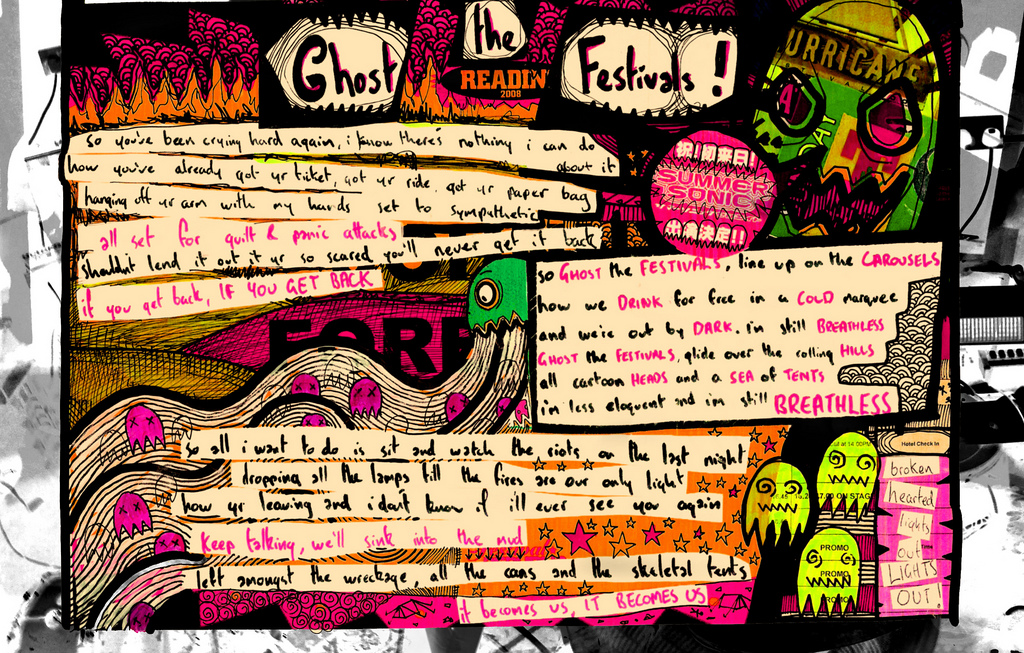 Ghost the Festivals!
READIN
2008
URRICANE
祝!
SUMMER
SONIC
so you've been crying hard again, i know there's nothing i can do
about it
now you've already got yr ticket, got yr ride, got yr paper bag
hanging off yr arm with my hands set to sympathetic
all set for guilt & panic attacks
shouldnt lend it out it yr so scared you'll never get it back
if you get back, IF YOU GET BACK
FORE
so GHOST the FESTIVALS, line up on the CAROUSELS
how we DRINK for free in a COLD marquee
and we're out by DARK. i'm still BREATHLESS
GHOST the FESTIVALS, glide over the rolling HILLS
all cartoon HEADS and a SEA of TENTS
i'm less eloquent and i'm still BREATHLESS
so all i want to do is sit and watch the riots, on the last night
dropping all the lamps till the fires are our only light
how yr leaving and i don't know if i'll ever see you again
keep talking, we'll sink into the mud
left amongst the wreckage, all the cans and the skeletal tents
it becomes us, IT BECOMES US
at 14:00PM
ON STAG
PROMO
PROMO
PROMO
Hotel Check In
broken
hearted
lights
out
LIGHTS
OUT!